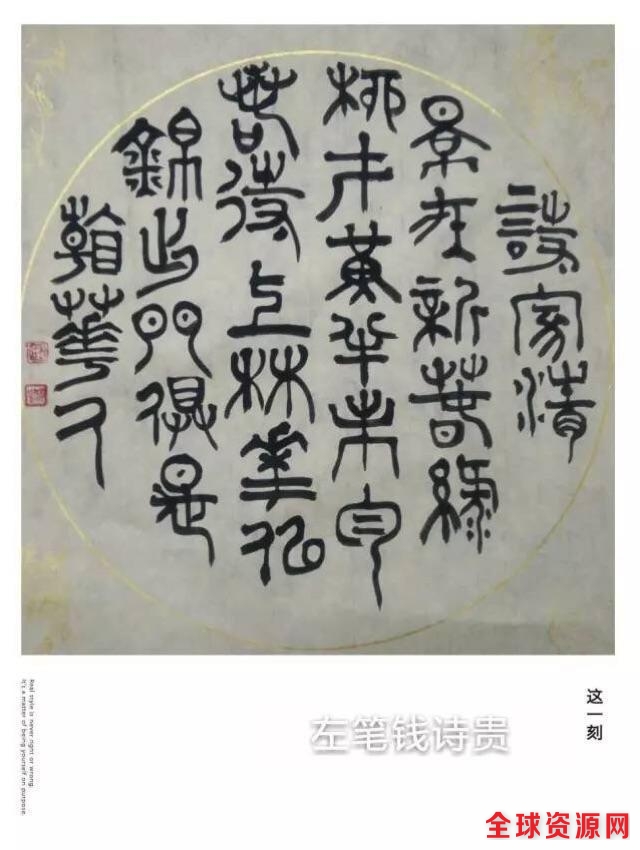 詩家清
景在新春綠
柳才黃半未勻
若待上林華似
錦出門俱是
看華人
这一刻
左笔钱诗贵
Real style is never right or wrong.
It's a matter of being yourself on purpose.
全球资源网